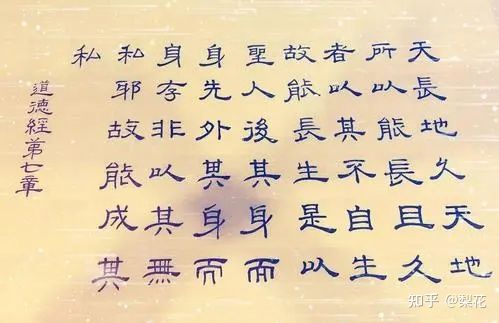 天長地久天地
所以能長且久
者以其不自生
故能長生是以
聖人後其身而
身先外其身而
身存非以其無
私耶故能成其
私
道德經第七章
知乎 @梨花